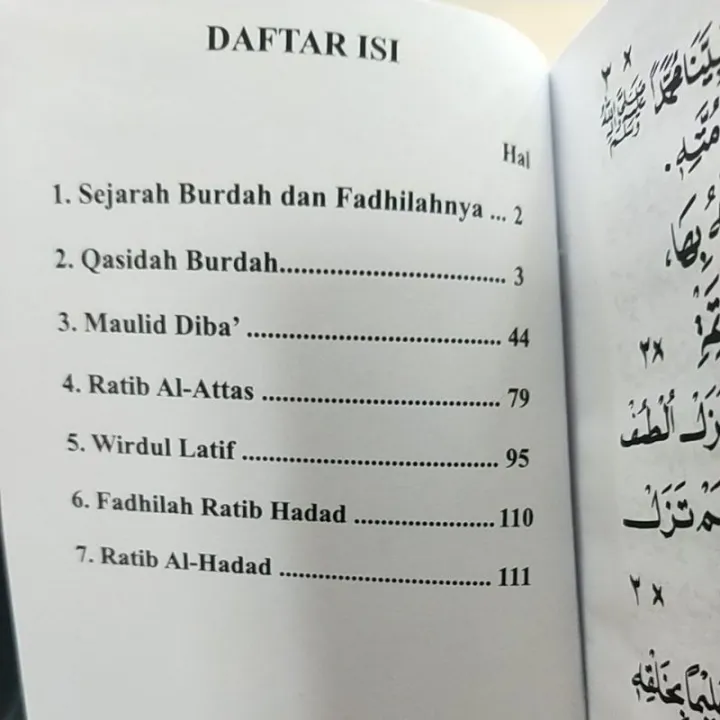 DAFTAR ISI
Hal
1. Sejarah Burdah dan Fadhilahnya ... 2
2. Qasidah Burdah.................................. 3
3. Maulid Diba’ ...................................... 44
4. Ratib Al-Attas .................................... 79
5. Wirdul Latif ...................................... 95
6. Fadhilah Ratib Hadad .....................110
7. Ratib Al-Hadad ................................ 111
x ٣
صلى الله عليه وآله وسلم
بِهَا،
٣x
الْطُفْ
لَمْ تَزَلْ
٣ x
بِخَلْقِهِ